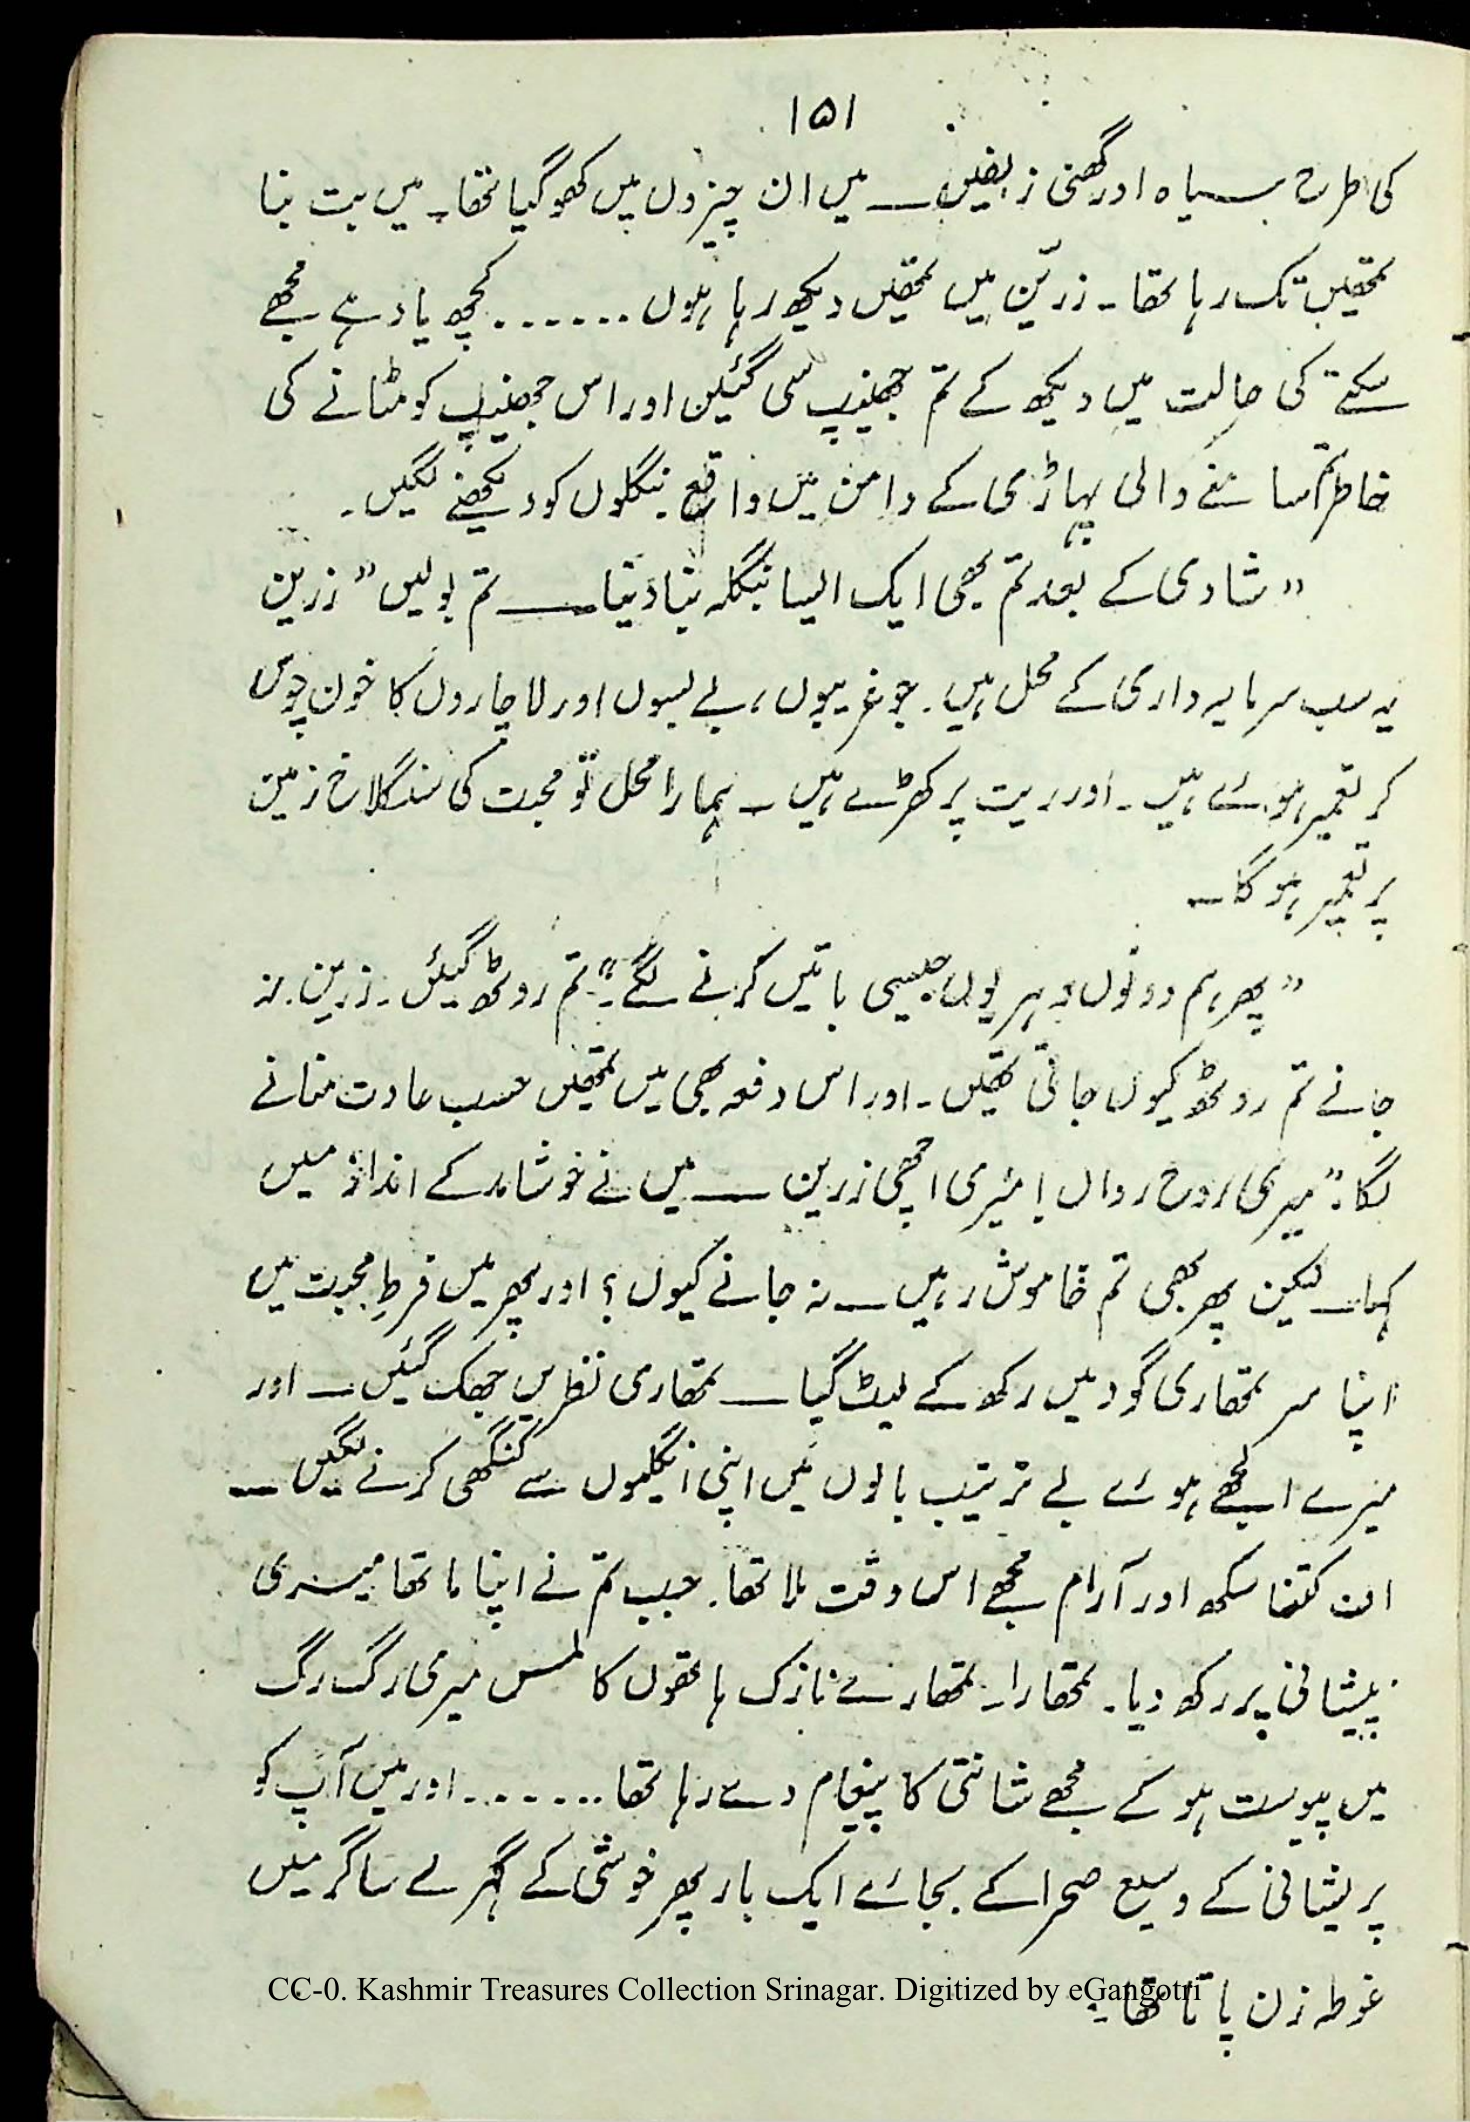 ۱۵۱
کی طرح سیاہ اور گھنی زلفیں ــــ میں ان چیزوں میں کھو گیا تھا۔ میں بت بنا
تمھیں تک رہا تھا۔ زرّین میں تمھیں دیکھ رہا ہوں ....... کچھ یاد ہے مجھے
سکتے کی حالت میں دیکھ کے تم جھینپ سی گئیں اور اس جھینپ کو مٹانے کی
خاطر تم سامنے والی پہاڑی کے دامن میں واقع بنگلوں کو دیکھنے لگیں۔
"شادی کے بعد تم بھی ایک ایسا بنگلہ بنا دینا ــــ تم بولیں" زرین
یہ سب سرمایہ داری کے محل ہیں۔ جو غریبوں، بے بسوں اور لاچاروں کا خون چوس
کر تعمیر ہوئے ہیں۔ اور ریت پر کھڑے ہیں ۔ ہمارا محل تو محبت کی سنگلاخ زمین
پر تعمیر ہو گا ۔
"پھر ہم دونوں دہریوں جیسی باتیں کرنے لگے"۔ تم روٹھ گئیں۔ زرین۔ نہ
جانے تم روٹھ کیوں جاتی تھیں۔ اور اس دفعہ بھی میں تمھیں حسب عادت منانے
لگا۔ "میری روح رواں! میری اچھی زرین ــــ میں نے خوشامد کے انداز میں
کہا ـــ لیکن پھر بھی تم خاموش رہیں ـــ نہ جانے کیوں؟ اور پھر میں فرطِ محبت میں
اپنا سر تمھاری گود میں رکھ کے لیٹ گیا ــــ تمھاری نظریں جھک گئیں ـــ اور
میرے الجھے ہوئے بے ترتیب بالوں میں اپنی انگلیوں سے کنگھی کرنے لگیں ــ
اف کتنا سکھ اور آرام مجھے اس وقت ملا تھا۔ جب تم نے اپنا ہاتھ میری
پیشانی پر رکھ دیا۔ تمھارا۔ تمھارے نازک ہاتھوں کا لمس میری رگ رگ
میں پیوست ہو کے مجھے شانتی کا پیغام دے رہا تھا ....... اور میں آپ کو
پریشانی کے وسیع صحرا کے بجائے ایک بار پھر خوشی کے گہرے ساگر میں
غوطہ زن پاتا تھا ۔
CC-0. Kashmir Treasures Collection Srinagar. Digitized by eGangotri